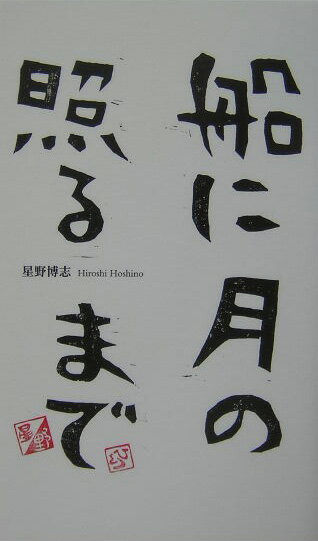 船に月の
照るまで
星野博志 Hiroshi Hoshino
星野
ひろし